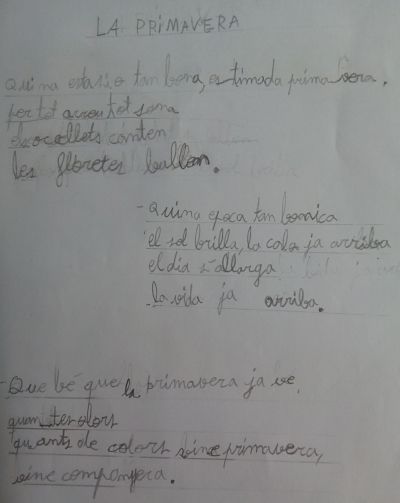 LA PRIMAVERA
Quina estasio tan bona, estimada primavera.
per tot arreu tot sona
els ocellets canten
les floretes ballen.
- Quina epoca tan bonica
el sol brilla, la calor ja arriba
el dia s'allarga
la vida ja arriba.
- Que bé que la primavera ja ve,
quantes olors
quants de colors vine primavera,
vine companyera.